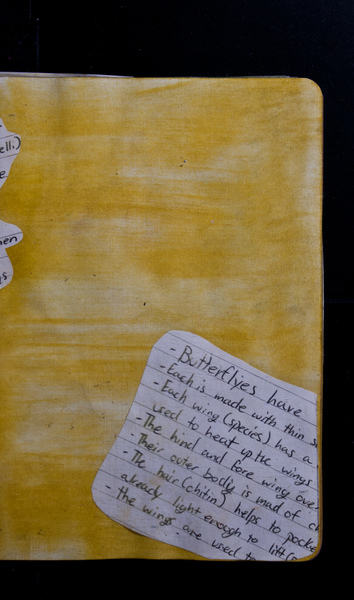 ell.)
e
nen
gs
- Butterflyes have
- Each is made with thin s
- Each wing (species) has a
used to heat up the wings
- The hind and fore wing over
- Their outer bodly is mad of c
- The hair (chitin) helps to pocke
already light enough to lift (
- the wings are used to